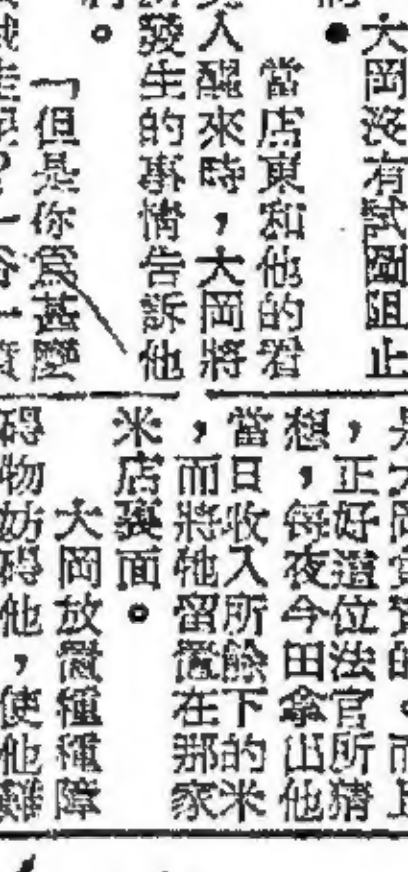 大岡沒有試圖阻止
。
當店東和他的看
人醒來時，大岡將
發生的事情告訴他
。
「但是你爲甚麼
，正好這位法官所猜
想，每夜今田拿出他
當日收入所餘下的米
，而將牠留置在那家
米店裏面。
大岡放置種種障
碍物妨碍他，使他難